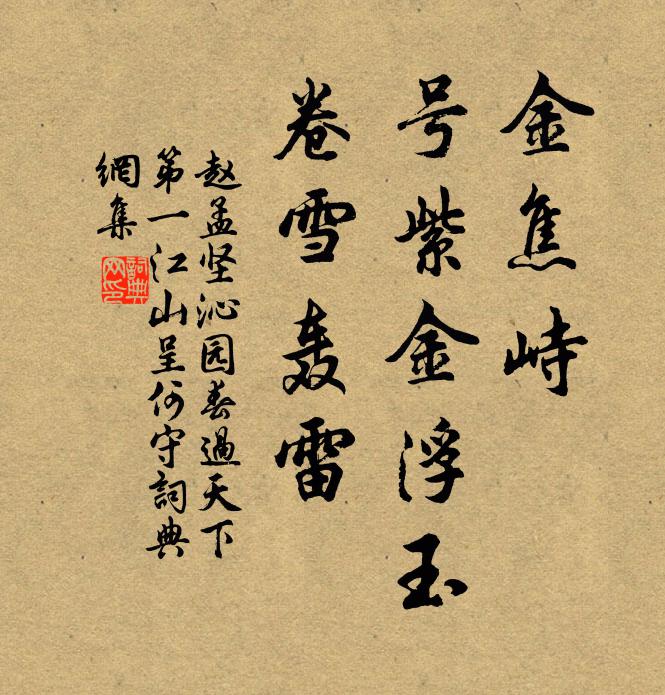 金焦峙
号紫金浮玉
卷雪轰雷
赵孟坚沁园春過天下
第一江山呈何守詞典
網集
詞典
网印